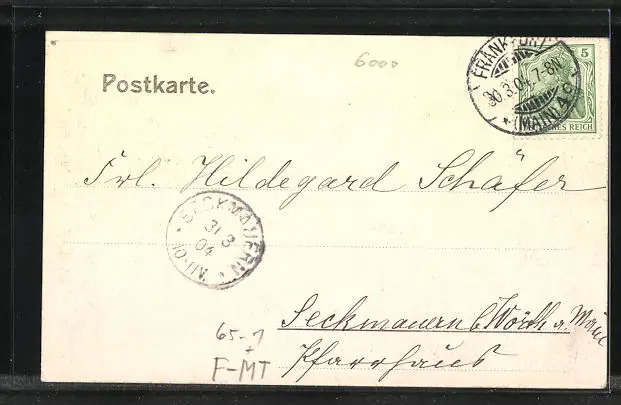 6000
Postkarte.
FRANKFURT
30.3.04.7-8N
* (MAIN) A.C.
5
DEUTSCHES REICH
Frl. Hildegard Schäfer
SECKMAUERN *
31 3
04
Seckmauern b/ Wörth a. Main
Pfarrhaus
65-1
+
F-MT